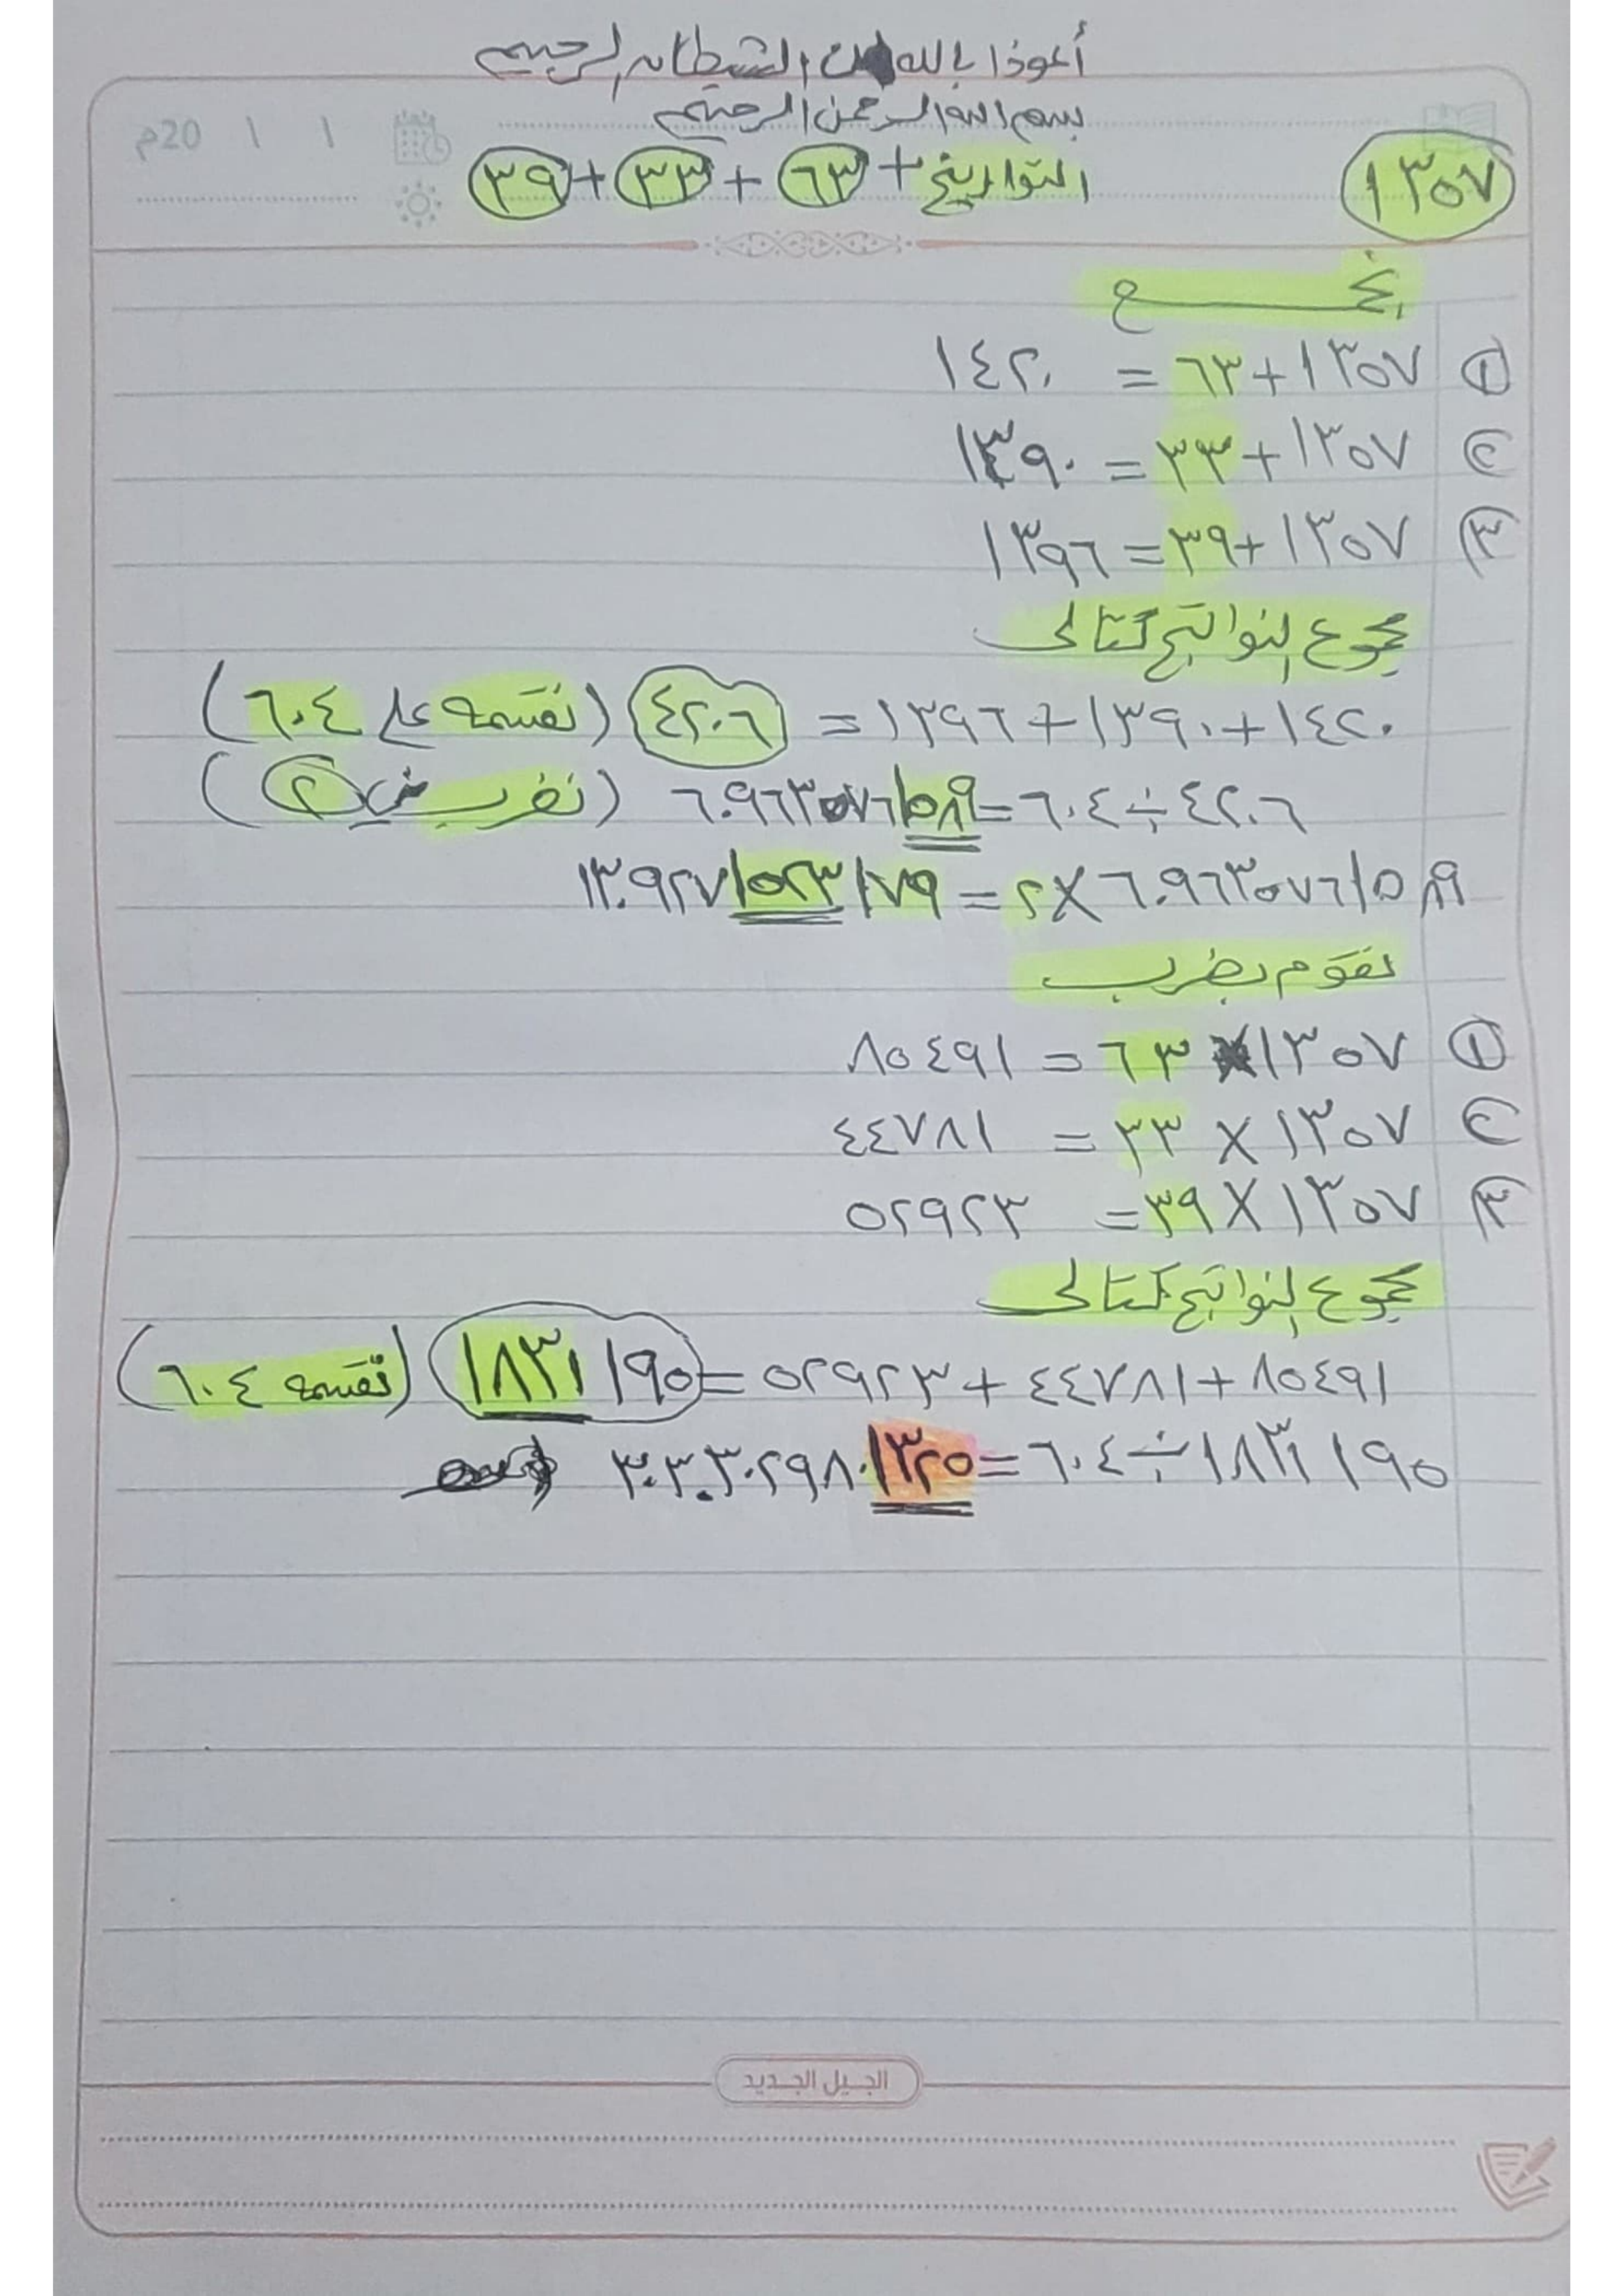 أعوذا بالله من الشيطان الرجيم
بسم الله الرحمن الرحيم
م20 ١ ١
١٣٥٧ التواريخ + ٦٣ + ٣٣ + ٣٩
① ١٣٥٧ + ٦٣ = ١٤٢٠
② ١٣٥٧ + ٣٣ = ١٣٩٠
③ ١٣٥٧ + ٣٩ = ١٣٩٦
مجموع النواتج كتالى
١٤٢٠ + ١٣٩٠ + ١٣٩٦ = ٤٢٠٦ (نقسمه على ٦٠٤)
٤٢٠٦ ÷ ٦٠٤ = ٦.٩٦٣٥٧٦١٥٨٩ (نضرب في ٢)
٦.٩٦٣٥٧٦١٥٨٩ × ٢ = ١٣.٩٢٧١٥٢٣١٧٩
نقوم بضرب
① ١٣٥٧ × ٦٣ = ٨٥٤٩١
② ١٣٥٧ × ٣٣ = ٤٤٧٨١
③ ١٣٥٧ × ٣٩ = ٥٢٩٢٣
مجموع النواتج كتالى
٨٥٤٩١ + ٤٤٧٨١ + ٥٢٩٢٣ = ١٨٣١١٩٥ (نقسمه ٦٠٤)
١٨٣١١٩٥ ÷ ٦٠٤ = ٣٠٣.٣٠٢٩٨٠١٣٢٥
الجيل الجديد